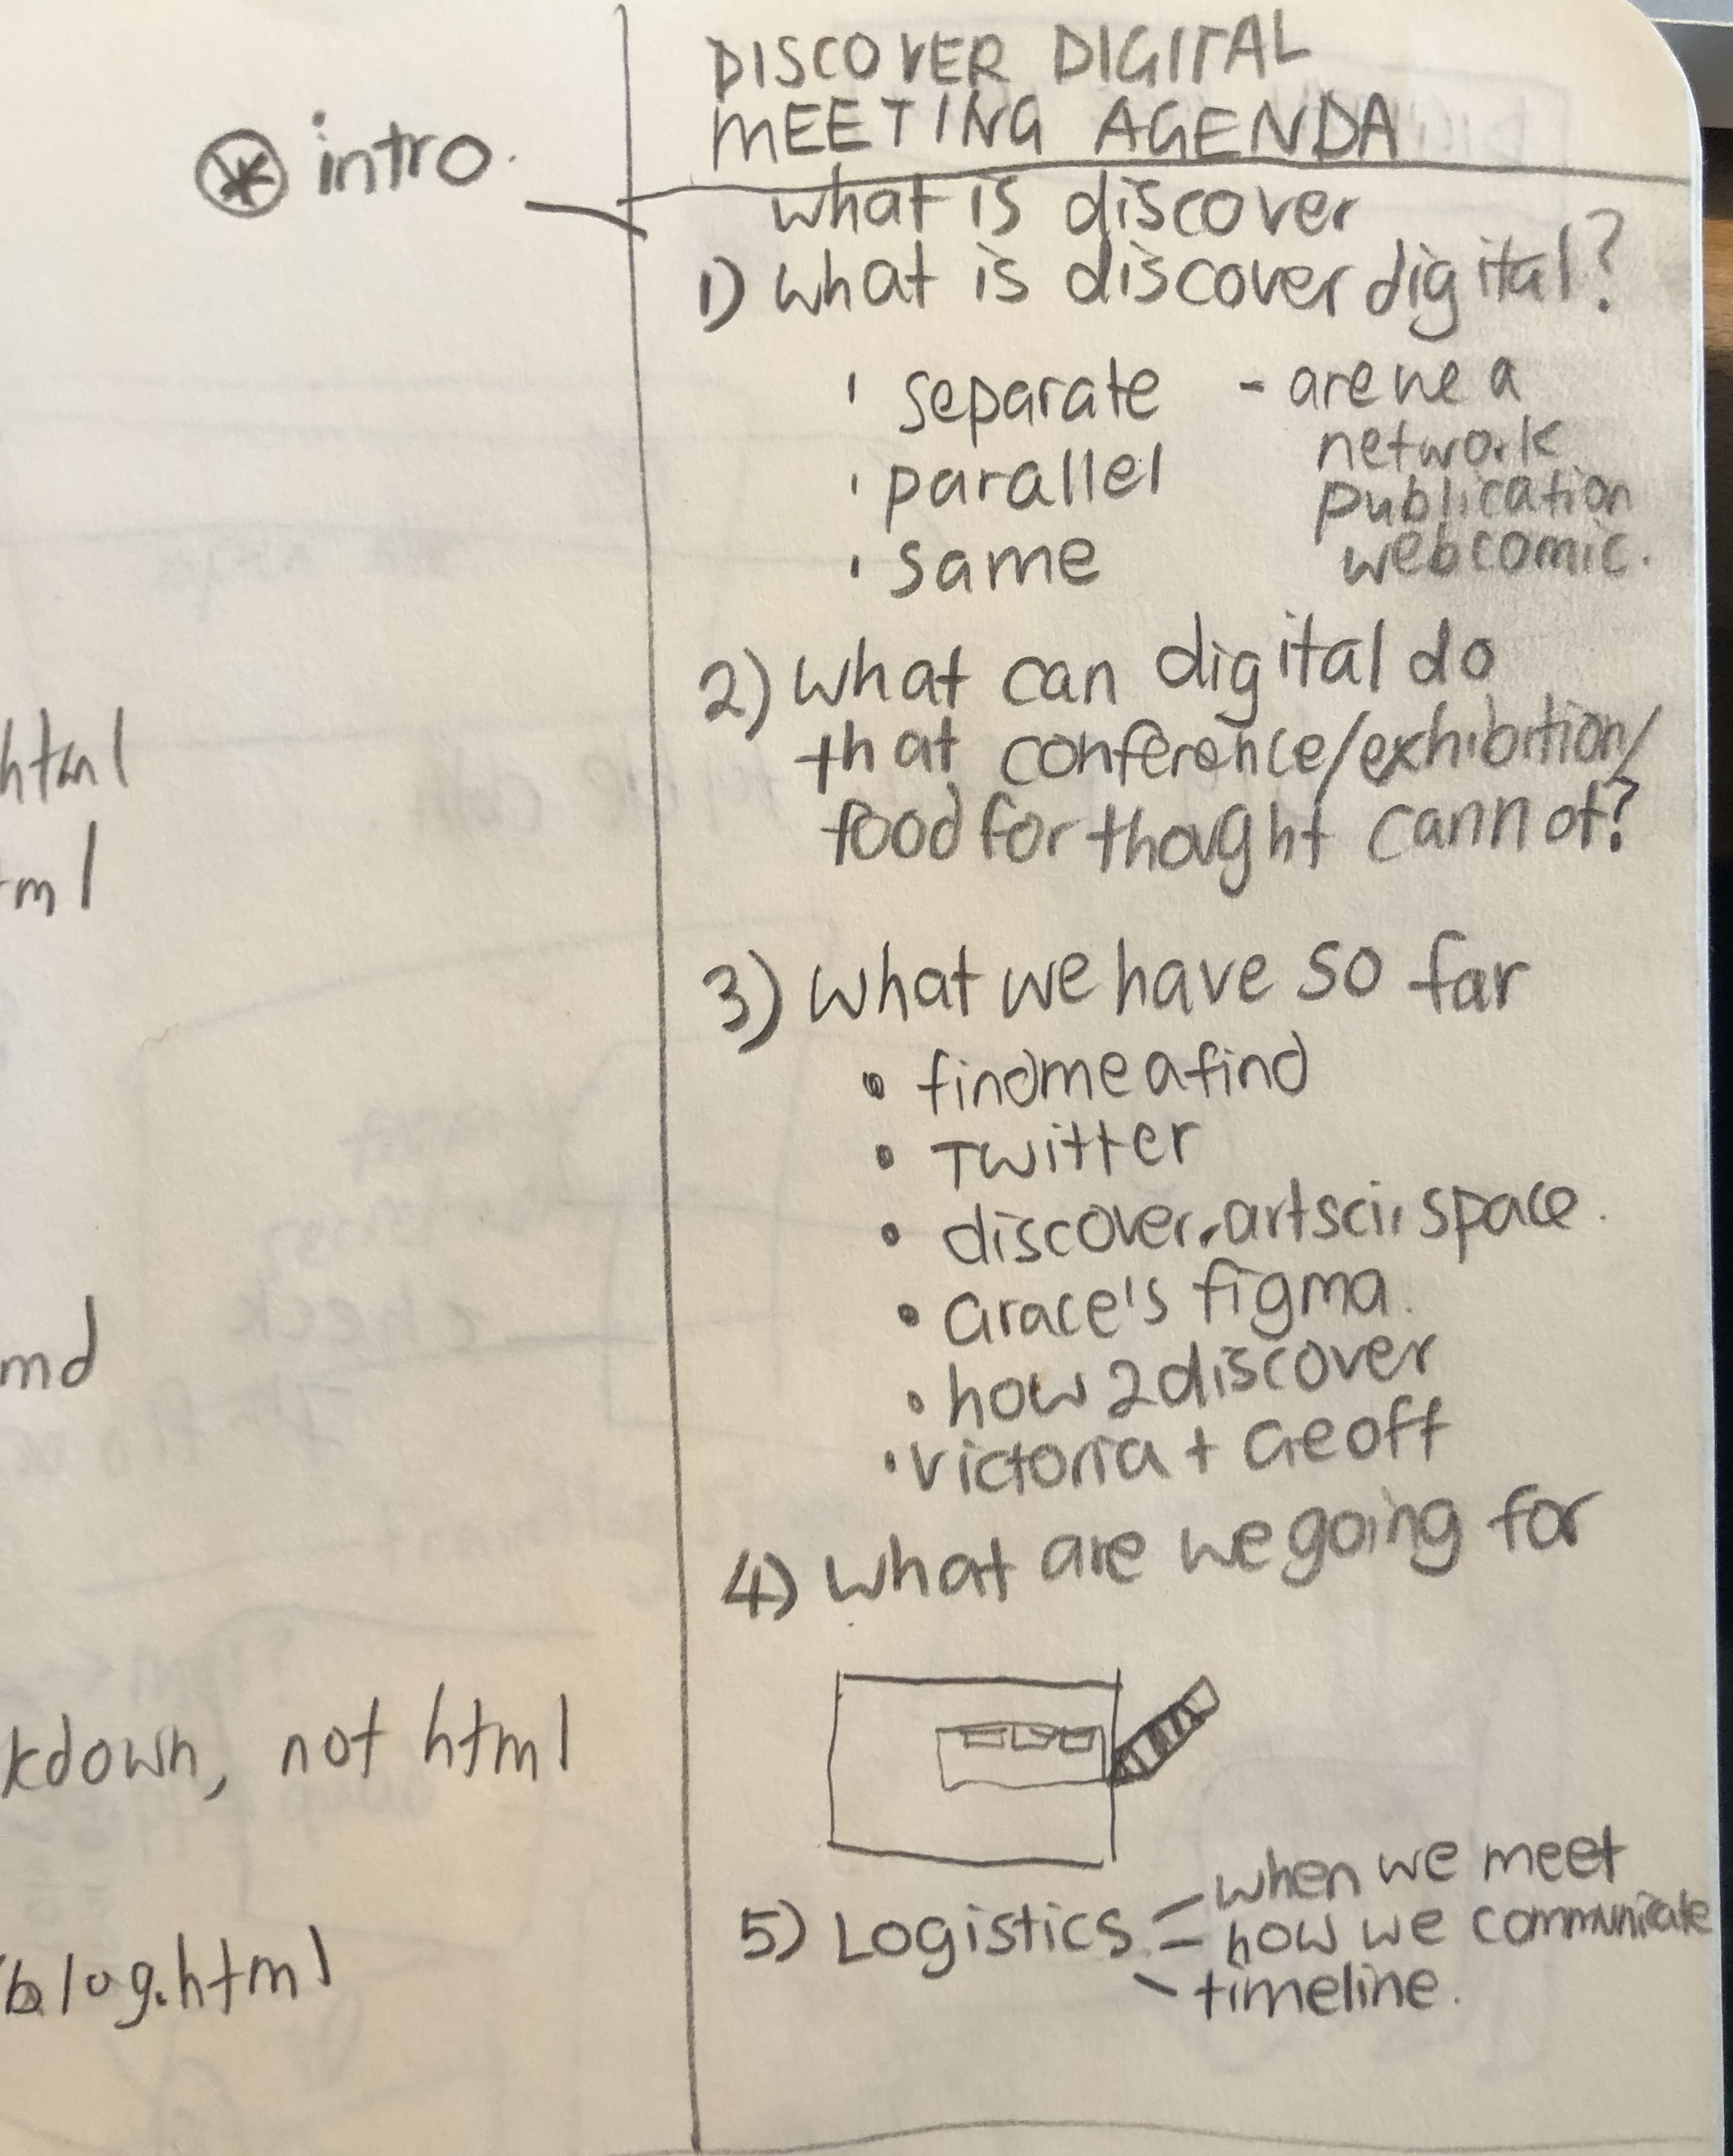 intro.
html
ml
md
kdown, not html
blog.html
DISCOVER DIGITAL
MEETING AGENDA
what is discover
1) what is discover digital?
' separate - are we a
network
' parallel
publication
' same
webcomic.
2) what can digital do
that conference/exhibition/
food for thought cannot?
3) what we have so far
• findmeafind
• Twitter
• discover.artsci.space.
• Grace's figma.
• how2discover
• Victoria + Geoff
4) what are we going for
5) Logistics - when we meet
- how we communicate
- timeline.